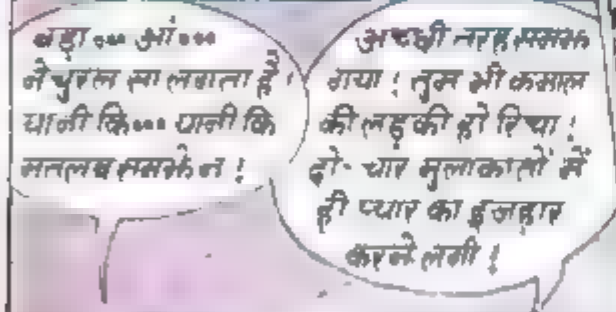 बड़ा... आं...
नेचुरल सा लगता है!
यानी कि... यानी कि
मतलब समझे न!
अच्छी तरह समझ
गया! तुम भी कमाल
की लड़की हो रिचा!
दो-चार मुलाकातों में
ही प्यार का इजहार
करने लगी!